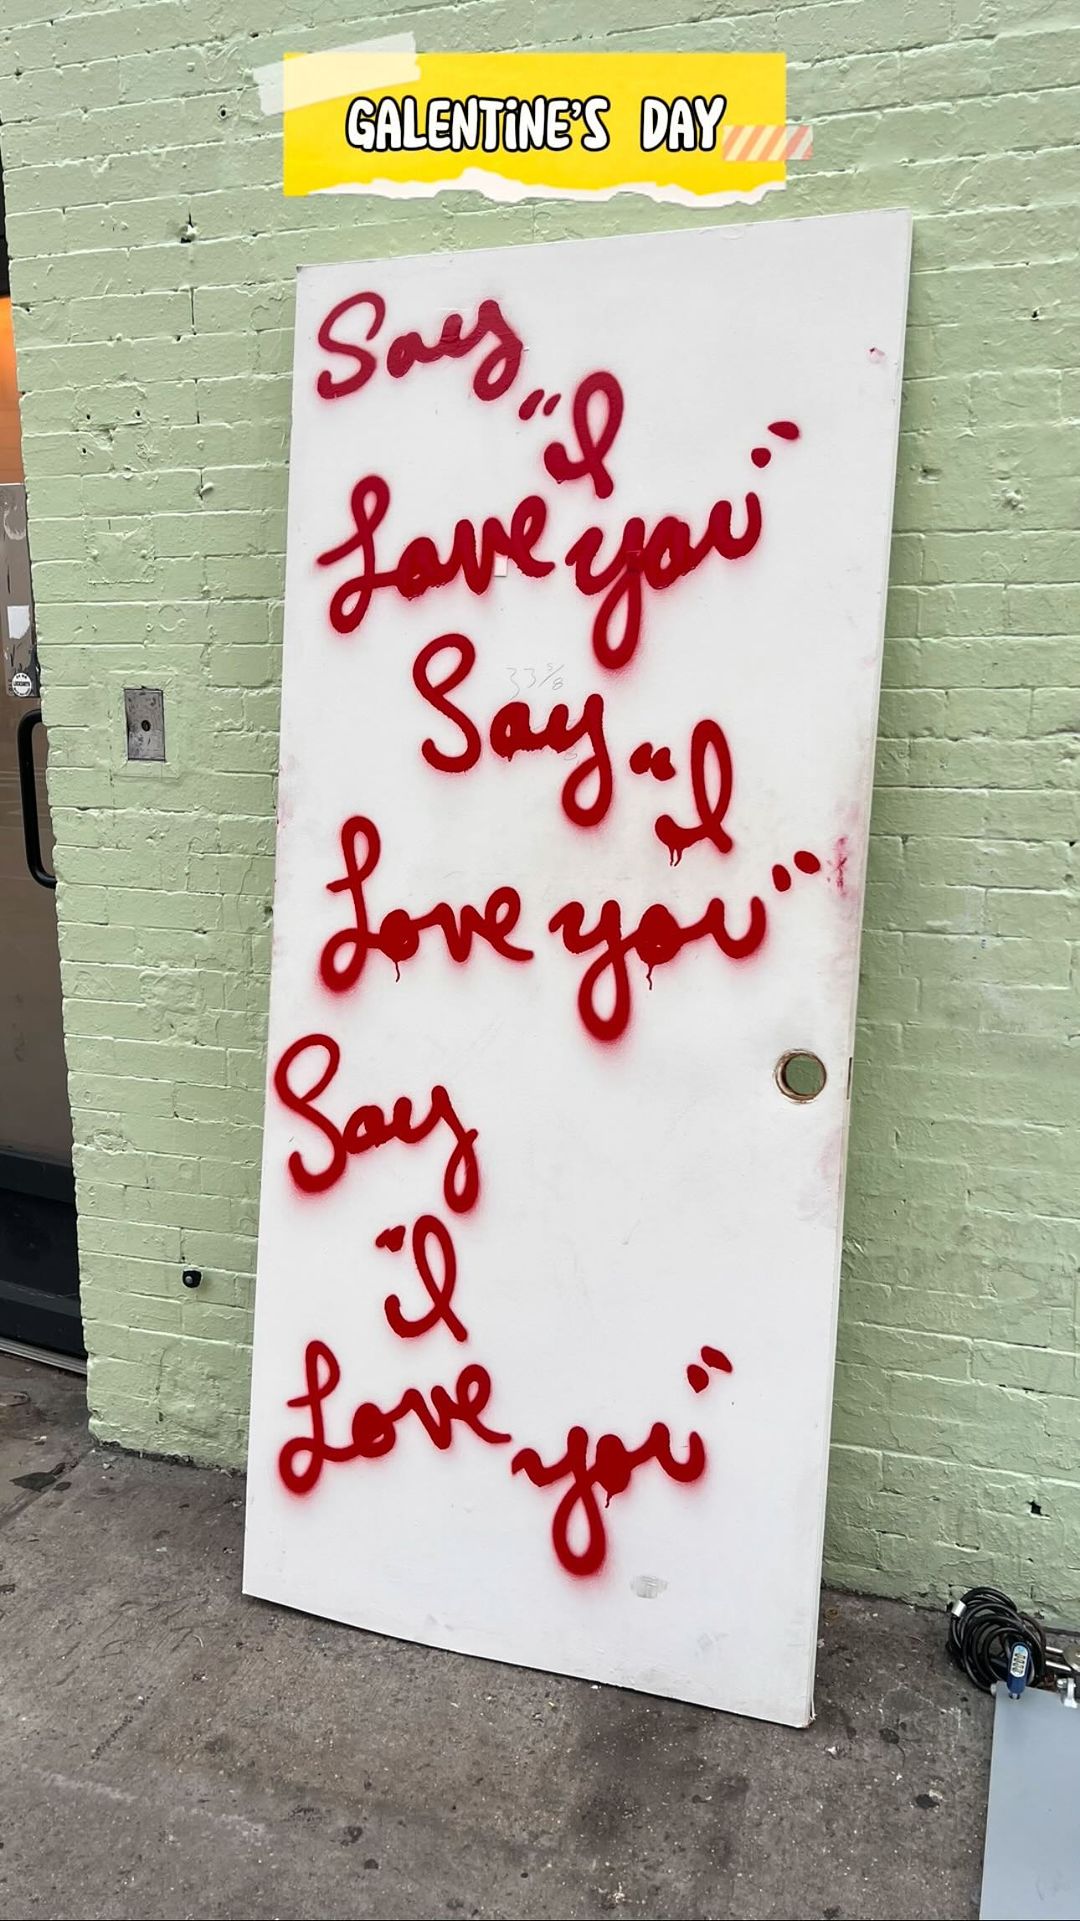 GALENTINE'S DAY
Say
"I
Love you"
Say
33 5/8
"I
Love you"
Say
"I
Love
you"